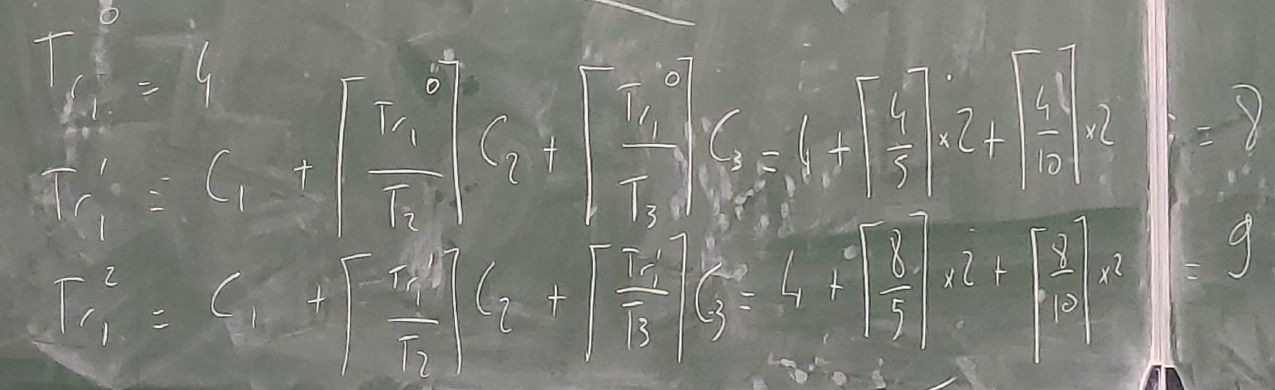 Tr₁⁰ = 4
Tr₁¹ = C₁ + ⌈Tr₁⁰/T₂⌉ C₂ + ⌈Tr₁⁰/T₃⌉ C₃ = 4 + ⌈4/5⌉ × 2 + ⌈4/10⌉ × 2 = 8
Tr₁² = C₁ + ⌈Tr₁¹/T₂⌉ C₂ + ⌈Tr₁¹/T₃⌉ C₃ = 4 + ⌈8/5⌉ × 2 + ⌈8/10⌉ × 2 = 9